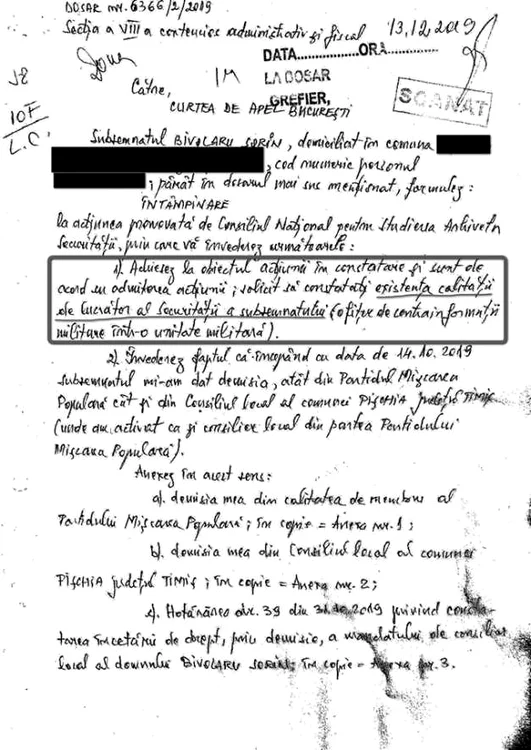 DOSAR nr. 6366/2/2019
Secția a VIII a contencios administrativ și fiscal 13,12,2019
DATA...............ORA..............
18 1M LA DOSAR
Către, GREFIER,
CURTEA DE APEL BUCUREȘTI SCANAT
10F
L.C.
Subsemnatul BIVOLARU SORIN, domiciliat în comuna
, cod numeric personal
; pârât în dosarul mai sus menționat, formulez:
ÎNTÂMPINARE
la acțiunea promovată de Consiliul Național pentru Studierea Arhivelor
Securității, prin care vă învederez următoarele:
1). Achiesez la obiectul acțiunii în constatare și sunt de
acord cu admiterea acțiunii; solicit să constatați existența calității
de lucrător al securității a subsemnatului (ofițer de contrainformații
militare într-o unitate militară).
2). Învederez faptul că începând cu data de 14.10.2019
subsemnatul mi-am dat demisia, atât din Partidul Mișcarea
Populară cât și din Consiliul local al comunei PIȘCHIA județul TIMIȘ
(unde am activat ca și consilier local din partea Partidului
Mișcarea Populară).
Anexez în acest sens:
a). demisia mea din calitatea de membru al
Partidului Mișcarea Populară; în copie = Anexa nr. 1;
b). demisia mea din Consiliul local al comunei
PIȘCHIA județul TIMIȘ; în copie = Anexa nr. 2;
c). Hotărârea nr. 39 din 31.10.2019 privind consta-
tarea încetării de drept, prin demisie, a mandatului de consilier
local al domnului BIVOLARU SORIN; în copie = Anexa nr. 3.